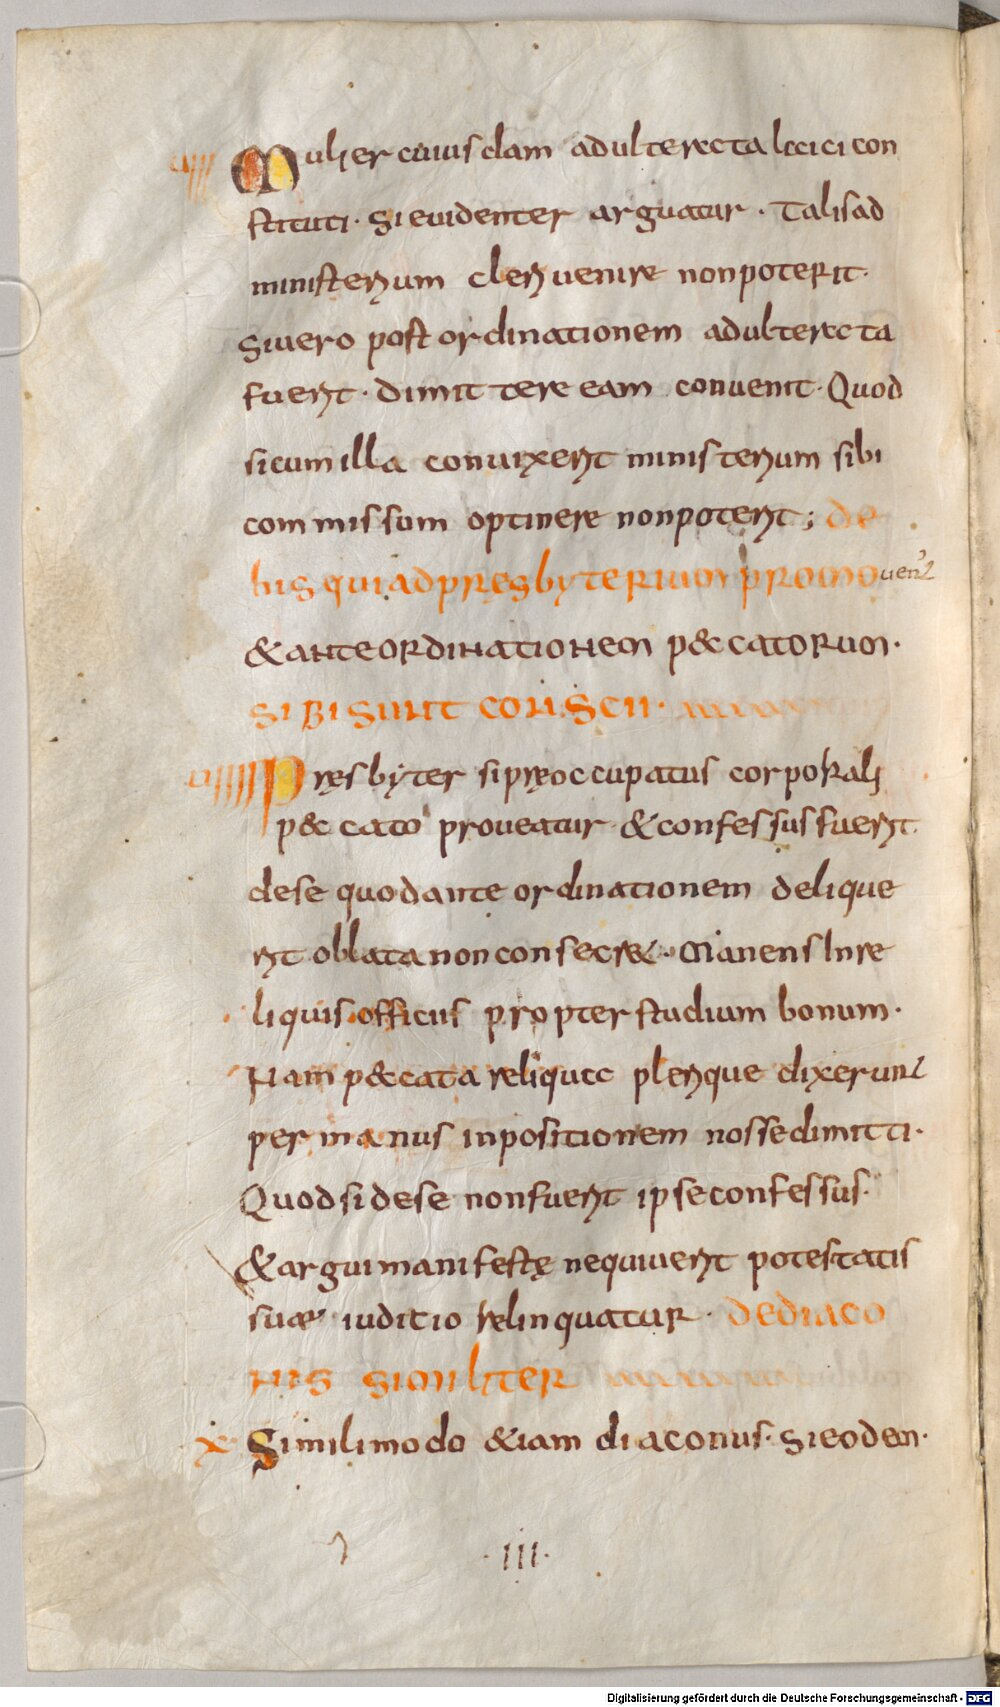 uiii Mulier cuiusdam adulterata laici con
stituti· Si euidenter arguatur· Talis ad
ministerium cleri uenire non poterit·
Si uero post ordinationem adulterata
fuerit· dimittere eam conuenit· Quod
si cum illa conuixerit ministerium sibi
commissum optinere non poterit; de
his qui ad pręsbyterium promouent̉
& ante ordinationem p&catorum·
Sibi sunt conscii·
uiiii Pręsbyter si pręoccupatus corporali
p&cato proueatur & confessus fuerit
de se quod ante ordinationem delique
rit oblata non consecr&· Manens In re
liquis officiis propter studium bonum·
Nam p&cata reliqua plerique dixerunt
per manus inpositionem posse dimitti·
Quod si de se non fuerit ipse confessus·
& argui manifestę nequiuerit potestatis
suae iuditio relinquatur· de diaco
nis similiter
x Simili modo &iam diaconus· Si eodem·
·III·
Digitalisierung gefördert durch die Deutsche Forschungsgemeinschaft - DFG